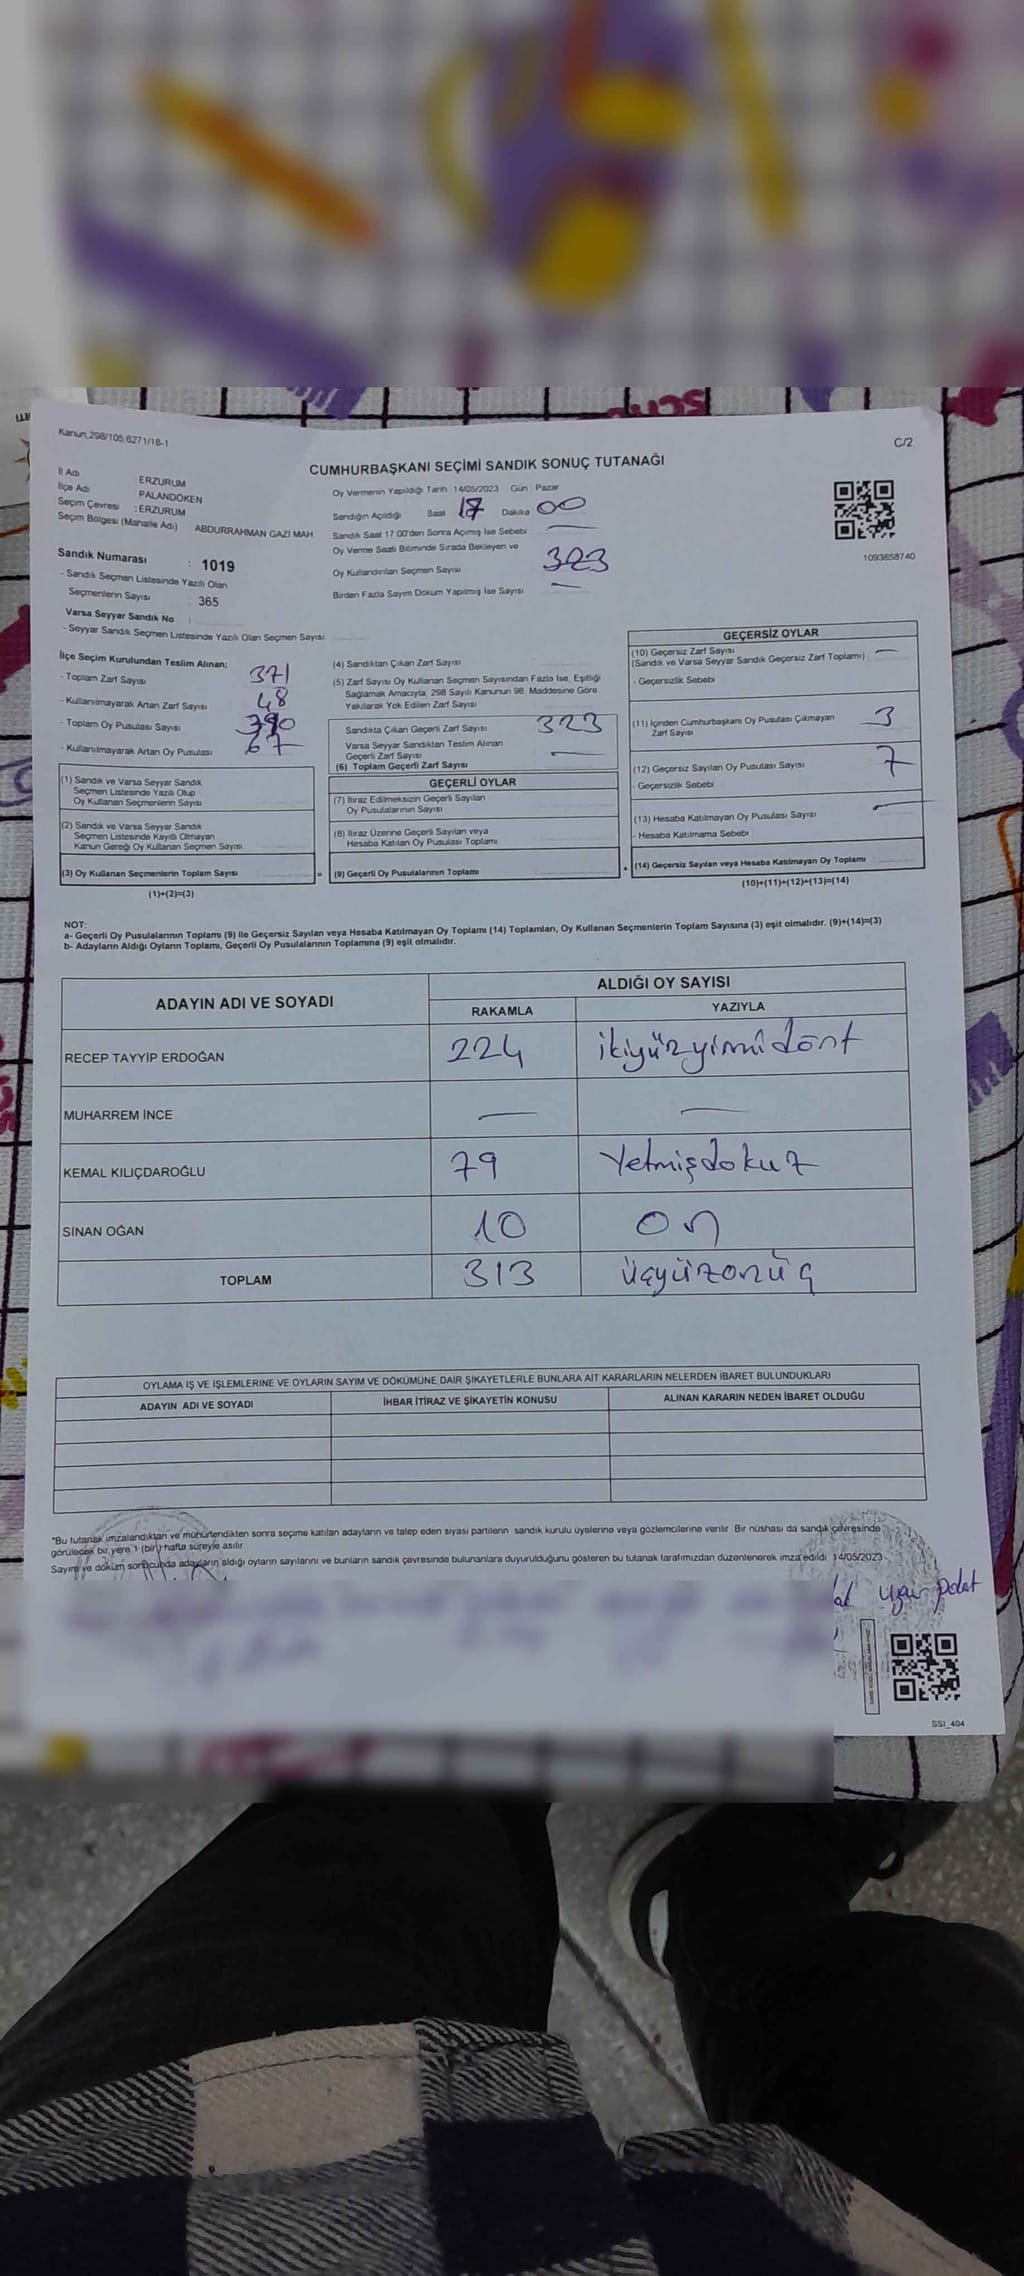 Kanun,298/105,6271/18-1
C/2
CUMHURBAŞKANI SEÇİMİ SANDIK SONUÇ TUTANAĞI
İl Adı ERZURUM
İlçe Adı PALANDÖKEN
Seçim Çevresi : ERZURUM
Seçim Bölgesi (Mahalle Adı) ABDURRAHMAN GAZİ MAH
Sandık Numarası : 1019
- Sandık Seçmen Listesinde Yazılı Olan
Seçmenlerin Sayısı : 365
Varsa Seyyar Sandık No :
- Seyyar Sandık Seçmen Listesinde Yazılı Olan Seçmen Sayısı
Oy Vermenin Yapıldığı Tarih 14/05/2023 Gün : Pazar
Sandığın Açıldığı Saat 17 Dakika 00
Sandık Saat 17:00'den Sonra Açılmış İse Sebebi
Oy Verme Saati Bitiminde Sırada Bekleyen ve
Oy Kullandırılan Seçmen Sayısı 323
Birden Fazla Sayım Döküm Yapılmış İse Sayısı —
1093658740
İlçe Seçim Kurulundan Teslim Alınan;
- Toplam Zarf Sayısı 371
- Kullanılmayarak Artan Zarf Sayısı 48
- Toplam Oy Pusulası Sayısı 390
- Kullanılmayarak Artan Oy Pusulası 67
(1) Sandık ve Varsa Seyyar Sandık
Seçmen Listesinde Yazılı Olup
Oy Kullanan Seçmenlerin Sayısı
(2) Sandık ve Varsa Seyyar Sandık
Seçmen Listesinde Kayıtlı Olmayan
Kanun Gereği Oy Kullanan Seçmen Sayısı
(3) Oy Kullanan Seçmenlerin Toplam Sayısı
(1)+(2)=(3)
(4) Sandıktan Çıkan Zarf Sayısı
(5) Zarf Sayısı Oy Kullanan Seçmen Sayısından Fazla İse, Eşitliği
Sağlamak Amacıyla, 298 Sayılı Kanunun 98. Maddesine Göre
Yakılarak Yok Edilen Zarf Sayısı
Sandıkta Çıkan Geçerli Zarf Sayısı 323
Varsa Seyyar Sandıktan Teslim Alınan
Geçerli Zarf Sayısı —
(6) Toplam Geçerli Zarf Sayısı
GEÇERLİ OYLAR
(7) İtiraz Edilmeksizin Geçerli Sayılan
Oy Pusulalarının Sayısı
(8) İtiraz Üzerine Geçerli Sayılan veya
Hesaba Katılan Oy Pusulası Toplamı
= (9) Geçerli Oy Pusulalarının Toplamı
GEÇERSİZ OYLAR
(10) Geçersiz Zarf Sayısı —
(Sandık ve Varsa Seyyar Sandık Geçersiz Zarf Toplamı)
- Geçersizlik Sebebi
(11) İçinden Cumhurbaşkanı Oy Pusulası Çıkmayan 3
Zarf Sayısı
(12) Geçersiz Sayılan Oy Pusulası Sayısı 7
- Geçersizlik Sebebi
(13) Hesaba Katılmayan Oy Pusulası Sayısı —
- Hesaba Katılmama Sebebi
+ (14) Geçersiz Sayılan veya Hesaba Katılmayan Oy Toplamı
(10)+(11)+(12)+(13)=(14)
NOT:
a- Geçerli Oy Pusulalarının Toplamı (9) ile Geçersiz Sayılan veya Hesaba Katılmayan Oy Toplamı (14) Toplamları, Oy Kullanan Seçmenlerin Toplam Sayısına (3) eşit olmalıdır. (9)+(14)=(3)
b- Adayların Aldığı Oyların Toplamı, Geçerli Oy Pusulalarının Toplamına (9) eşit olmalıdır.
ADAYIN ADI VE SOYADI ALDIĞI OY SAYISI
RAKAMLA YAZIYLA
RECEP TAYYİP ERDOĞAN 224 ikiyüzyirmidört
MUHARREM İNCE — —
KEMAL KILIÇDAROĞLU 79 Yetmişdokuz
SİNAN OĞAN 10 on
TOPLAM 313 üçyüzonüç
OYLAMA İŞ VE İŞLEMLERİNE VE OYLARIN SAYIM VE DÖKÜMÜNE DAİR ŞİKAYETLERLE BUNLARA AİT KARARLARIN NELERDEN İBARET BULUNDUKLARI
ADAYIN ADI VE SOYADI İHBAR İTİRAZ VE ŞİKAYETİN KONUSU ALINAN KARARIN NEDEN İBARET OLDUĞU
"Bu tutanak imzalandıktan ve mühürlendikten sonra seçime katılan adayların ve talep eden siyasi partilerin sandık kurulu üyelerine veya gözlemcilerine verilir. Bir nüshası da sandık çevresinde
görülecek bir yere 1 (bir) hafta süreyle asılır.
Sayım ve döküm sonucunda adayların aldığı oyların sayılarını ve bunların sandık çevresinde bulunanlara duyurulduğunu gösteren bu tutanak tarafımızdan düzenlenerek imza edildi. 14/05/2023
Uğur Polat
SSI_404